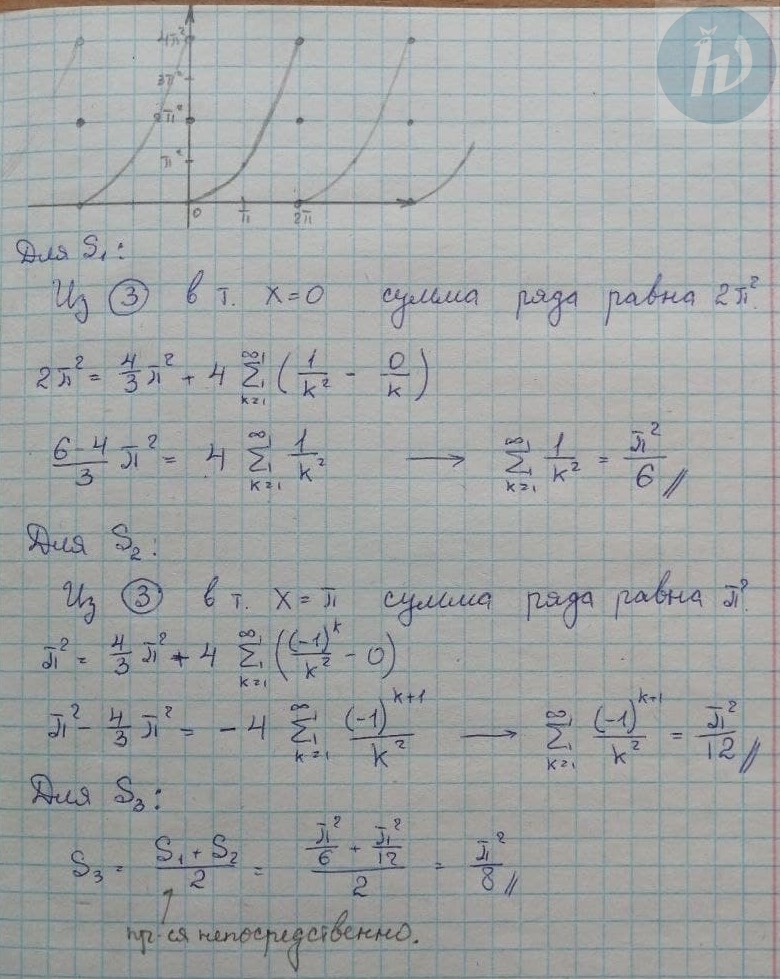 4π²
3π²
2π²
π²
0 π 2π
Для S₁:
Из ③ в т. x=0 сумма ряда равна 2π².
2π² = 4/3 π² + 4 ∞∑k=1 (1/k² - 0/k)
(6-4)/3 π² = 4 ∞∑k=1 1/k² → ∞∑k=1 1/k² = π²/6 //
Для S₂:
Из ③ в т. x=π сумма ряда равна π².
π² = 4/3 π² + 4 ∞∑k=1 ((-1)ᵏ/k² - 0)
π² - 4/3 π² = -4 ∞∑k=1 (-1)ᵏ⁺¹/k² → ∞∑k=1 (-1)ᵏ⁺¹/k² = π²/12 //
Для S₃:
S₃ = (S₁ + S₂)/2 = (π²/6 + π²/12)/2 = π²/8 //
пр-ся непосредственно.